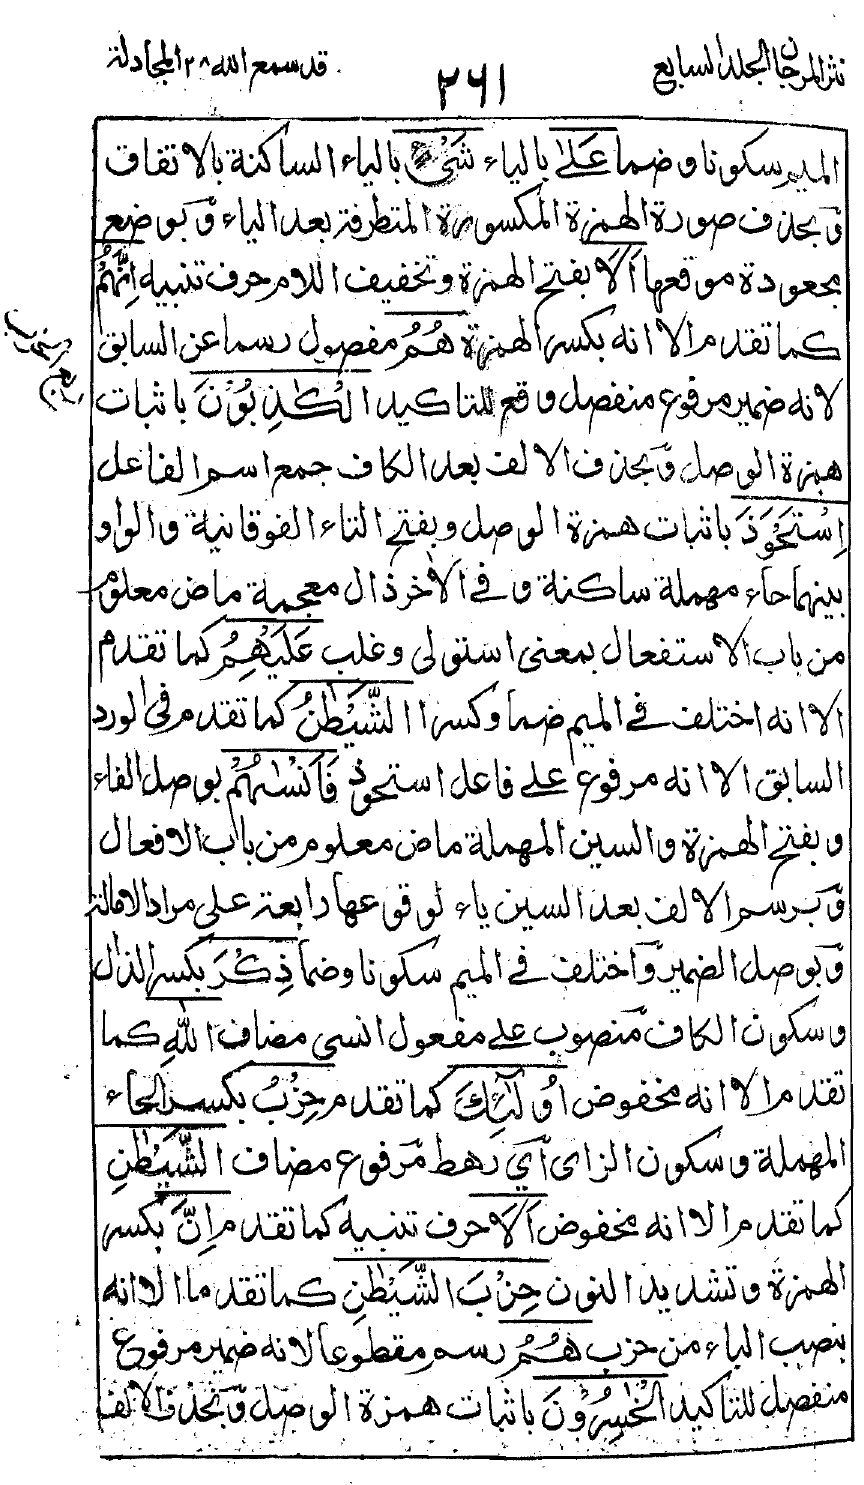 نثر المرجان الجلد السابع
٢٦١
قد سمع الله ٢٨ المجادلة
الميم سكونا وضما عَلىٰ بالياء شَیْءٍ بالياء الساكنة بالاتفاق
وبحذف صورة الهمزة المكسورة المتطرفة بعد الياء وبوضع
مجعودة موقعها اَلَا بفتح الهمزة وتخفيف اللام حرف تنبيه اِنَّهُمْ
كما تقدم الا انه بكسر الهمزة هُمُ مفصول رسما عن السابق
لانه ضمير مرفوع منفصل وقع للتاكيد الْكٰذِبُوْنَ باثبات
همزة الوصل وبحذف الالف بعد الكاف جمع اسم الفاعل
اِسْتَحْوَذَ باثبات همزة الوصل وبفتح التاء الفوقانية والواو
بينهما حاء مهملة ساكنة وفي الاخر ذال معجمة ماض معلوم
من باب الاستفعال بمعنى استولى وغلب عَلَيْهِمُ كما تقدم
الا انه اختلف في الميم ضما وكسرا الشَّيْطٰنُ كما تقدم في الورد
السابق الا انه مرفوع على فاعل استحوذ فَاَنْسٰىهُمْ بوصل الفاء
وبفتح الهمزة والسين المهملة ماض معلوم من باب الافعال
وبرسم الالف بعد السين ياء لوقوعها رابعة على مراد الامالة
وبوصل الضمير واختلف في الميم سكونا وضما ذِكْرَ بكسر الذال
وسكون الكاف منصوب على مفعول انسى مضاف اللهِ كما
تقدم الا انه مخفوض اُولٰٓئِكَ كما تقدم حِزْبُ بكسر الحاء
المهملة وسكون الزاى اَي رهط مرفوع مضاف الشَّيْطٰنِ
كما تقدم الا انه مخفوض اَلَا حرف تنبيه كما تقدم اِنَّ بكسر
الهمزة وتشديد النون حِزْبَ الشَّيْطٰنِ كما تقدما الا انه
بنصب الباء من حزب هُمُ رسم مقطوعا لانه ضمير مرفوع
منفصل للتاكيد الْخٰسِرُوْنَ باثبات همزة الوصل وبحذف الالف